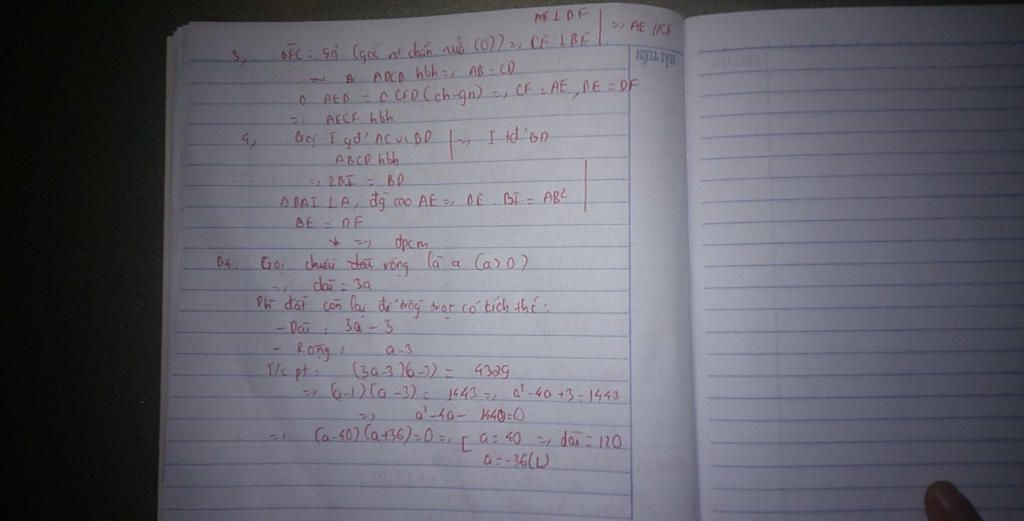 AE ⊥ BF | => AE // CF
3, BFC = 90 (góc nt chắn nửa (O)) => CF ⊥ BF
~ ABCD hbh => AB = CD
Δ AEB = Δ CFD (ch-gn) => CF = AE, BE = DF
=> AECF hbh
4, Gọi I gđ' AC và BD | => I tđ' BD
ABCD hbh
=> 2BI = BD
Δ BAI ⊥ A, đg cao AE => BE . BI = AB²
BE = DF
* => đpcm
B4: Gọi chiều rộng là a (a>0)
=> dài = 3a
Ph đất còn lại để trồng trọt có kích thc:
- Dài : 3a - 3
- Rộng : a-3
T/c pt: (3a-3)(a-3) = 4329
=> (a-1)(a-3) = 1443 => a²-4a+3 = 1443
=> a²-4a-1440=0
=> (a-40)(a+36)=0 => [ a=40 => dài = 120
a=-36(L)
BÀI TIẾN